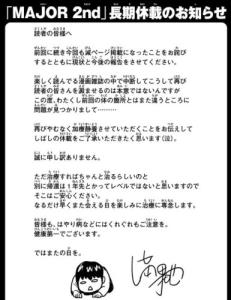 「MAJOR 2nd」長期休載のお知らせ
読者の皆様へ
前回に続き今回も減ページ掲載になったことをお詫び
するとともに現状と今後の報告をさせてください。
楽しく読んでる漫画雑誌の中で中断してこうして再び
読者の皆さんを選まうせるのは本意ではないんですが
この度、わたくし前回の体の箇所とはまた違うところに
問題が見つかりまして………
再びやむなく加療静養させていただくことをお伝えして
しばしの休載をご了承いただきたく思います(泣)。
誠に申し訳ありません。
ただ治療すればちゃんと治るらしいのと
別に帰還は1年先とかってレベルではないと思いますので
そこはご安心ください。
なるだけ早くまた会える日を楽しみに治療に専念します。
皆様も、はやり病などにはくれぐれもご注意を。
健康第一でございます。
ではまたの日を。
満田拓也